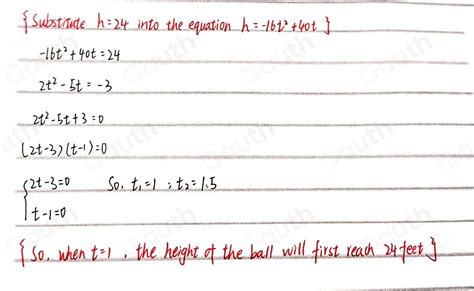 {Substitute h=24 into the equation h=-16t²+40t}
-16t²+40t=24
2t²-5t=-3
2t²-5t+3=0
(2t-3)(t-1)=0
{2t-3=0 So, t₁=1 ; t₂=1.5
t-1=0
{So, when t=1, the height of the ball will first reach 24 feet}